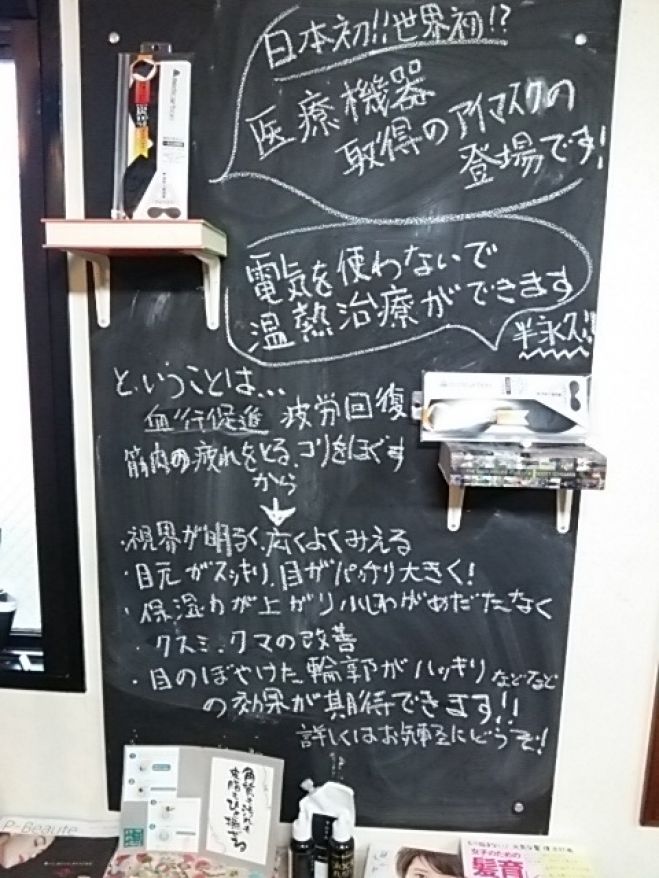 日本初!!世界初!?
医療機器
取得のアイマスクの
登場です!
電気を使わないで
温熱治療ができます
半永久!!
ということは...
血行促進 疲労回復
筋肉の疲れをとる、コリをほぐす
から
・視界が明るく、広くよくみえる
・目元がスッキリ、目がパッチリ大きく!
・保湿力が上がり小じわがめだたなく
・クスミ、クマの改善
・目のぼやけた輪郭がハッキリなどなど
の効果が期待できます!!
詳しくはお気軽にどうぞ!
P-Beauté
女子のための
髪育